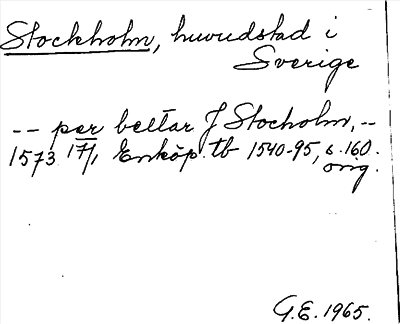 Stockholm, huvudstad i
Sverige
-- per beltar J Stocholm, --
1573 17/1, Enköp. tb 1540-95, s. 160.
orig.
G.E. 1965.